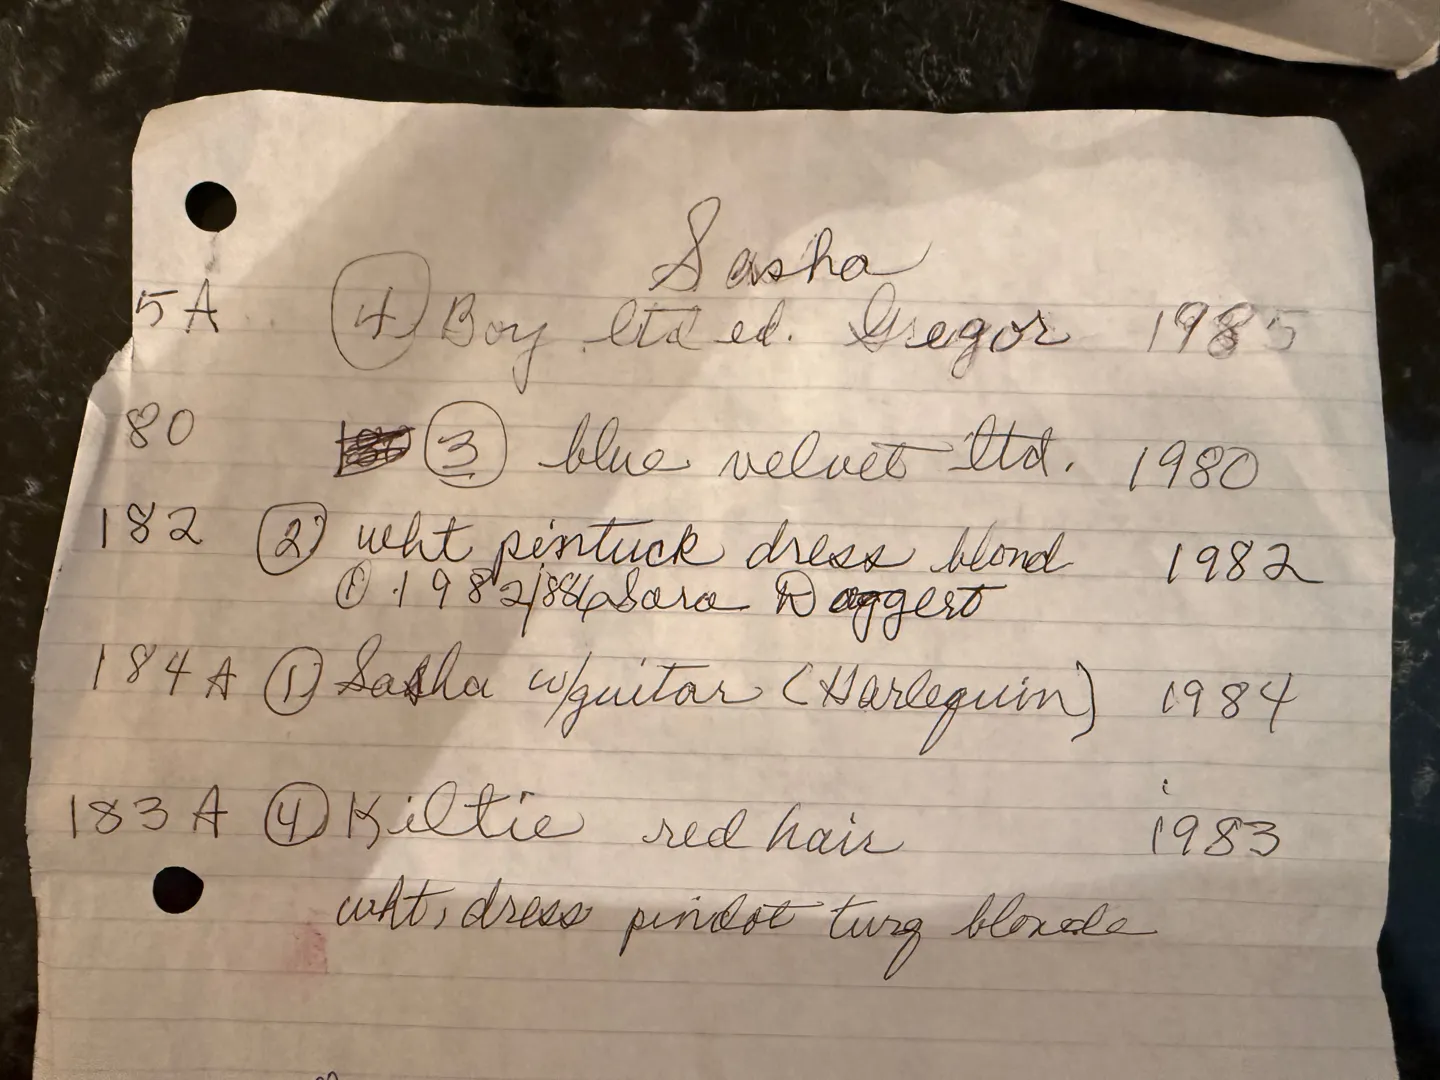 Sasha
5A 4 Boy ltd ed. Gregor 1985
80 3 blue velvet ltd. 1980
182 2 wht pintuck dress blond 1982
1982/ Sara Doggert
184A 1 Sasha w/guitar (Harlequin) 1984
183A 4 Kiltie red hair 1983
wht, dress pindot turq blonde